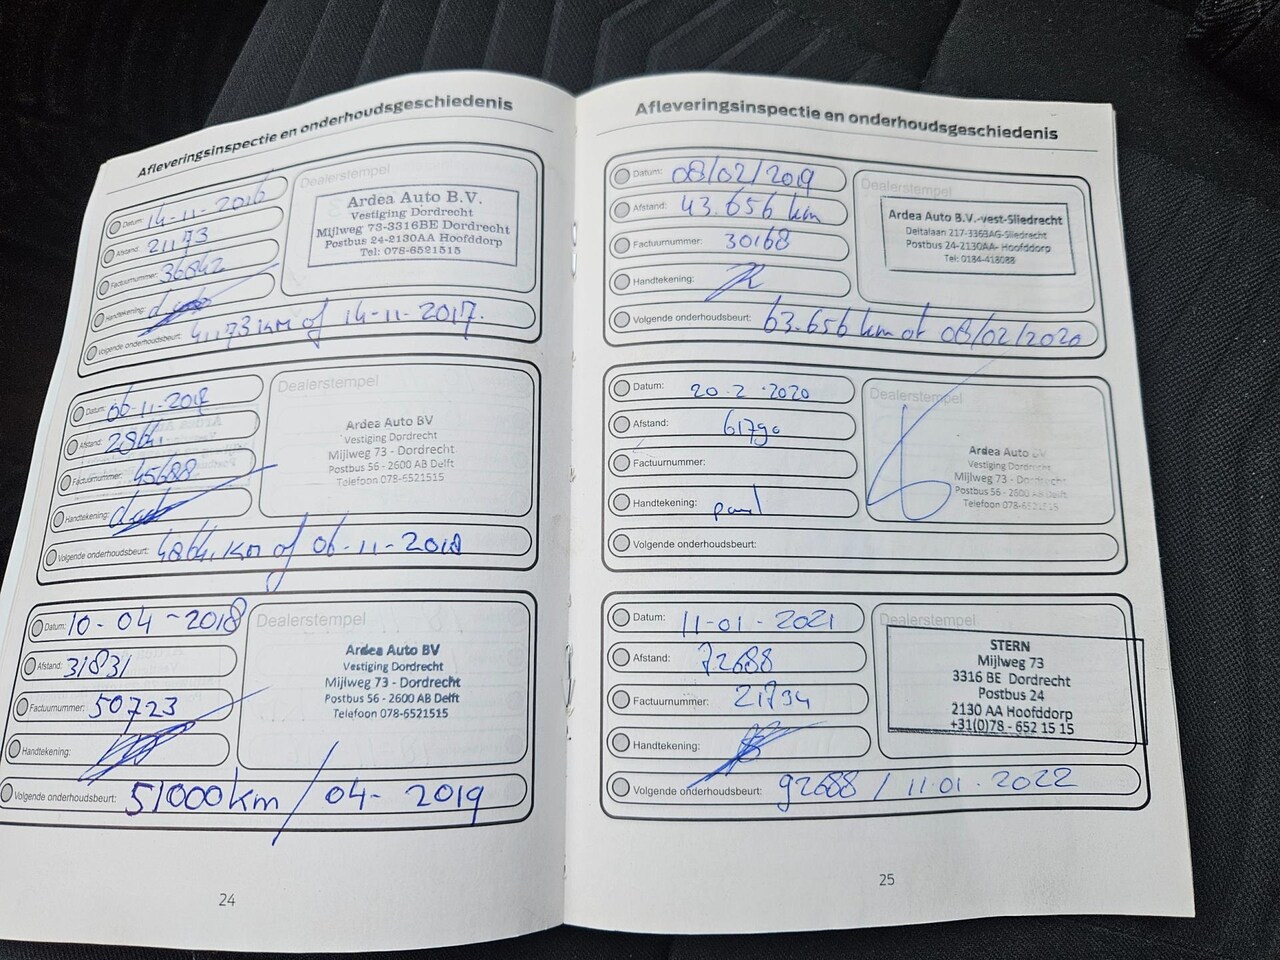 Afleveringsinspectie en onderhoudsgeschiedenis
Datum: 14-11-2016
Afstand: 21173
Factuurnummer: 36842
Handtekening:
Volgende onderhoudsbeurt: 41173 km of 14-11-2017.
Dealerstempel
Ardea Auto B.V.
Vestiging Dordrecht
Mijlweg 73-3316BE Dordrecht
Postbus 24-2130AA Hoofddorp
Tel: 078-6521515
Datum: 06-11-
Afstand:
Factuurnummer: 45688
Handtekening:
Volgende onderhoudsbeurt: km of 06-11-2018
Dealerstempel
Ardea Auto BV
Vestiging Dordrecht
Mijlweg 73 - Dordrecht
Postbus 56 - 2600 AB Delft
Telefoon 078-6521515
Datum: 10-04-2018
Afstand: 31831
Factuurnummer: 50723
Handtekening:
Volgende onderhoudsbeurt: 51000km / 04-2019
Dealerstempel
Ardea Auto BV
Vestiging Dordrecht
Mijlweg 73 - Dordrecht
Postbus 56 - 2600 AB Delft
Telefoon 078-6521515
24
Afleveringsinspectie en onderhoudsgeschiedenis
Datum: 08/02/2019
Afstand: 43.656 km
Factuurnummer: 30168
Handtekening:
Volgende onderhoudsbeurt: 63.656 km of 08/02/2020
Dealerstempel
Ardea Auto B.V.-vest-Sliedrecht
Deltalaan 217-3363AG-Sliedrecht
Postbus 24-2130AA- Hoofddorp
Tel: 0184-418088
Datum: 20-2-2020
Afstand: 61790
Factuurnummer:
Handtekening: paul
Volgende onderhoudsbeurt:
Dealerstempel
Ardea Auto BV
Vestiging Dordrecht
Mijlweg 73 - Dordrecht
Postbus 56 - 2600 AB Delft
Telefoon 078-6521515
Datum: 11-01-2021
Afstand: 72688
Factuurnummer: 21734
Handtekening:
Volgende onderhoudsbeurt: 92688 / 11.01.2022
Dealerstempel
STERN
Mijlweg 73
3316 BE Dordrecht
Postbus 24
2130 AA Hoofddorp
+31(0)78 - 652 15 15
25